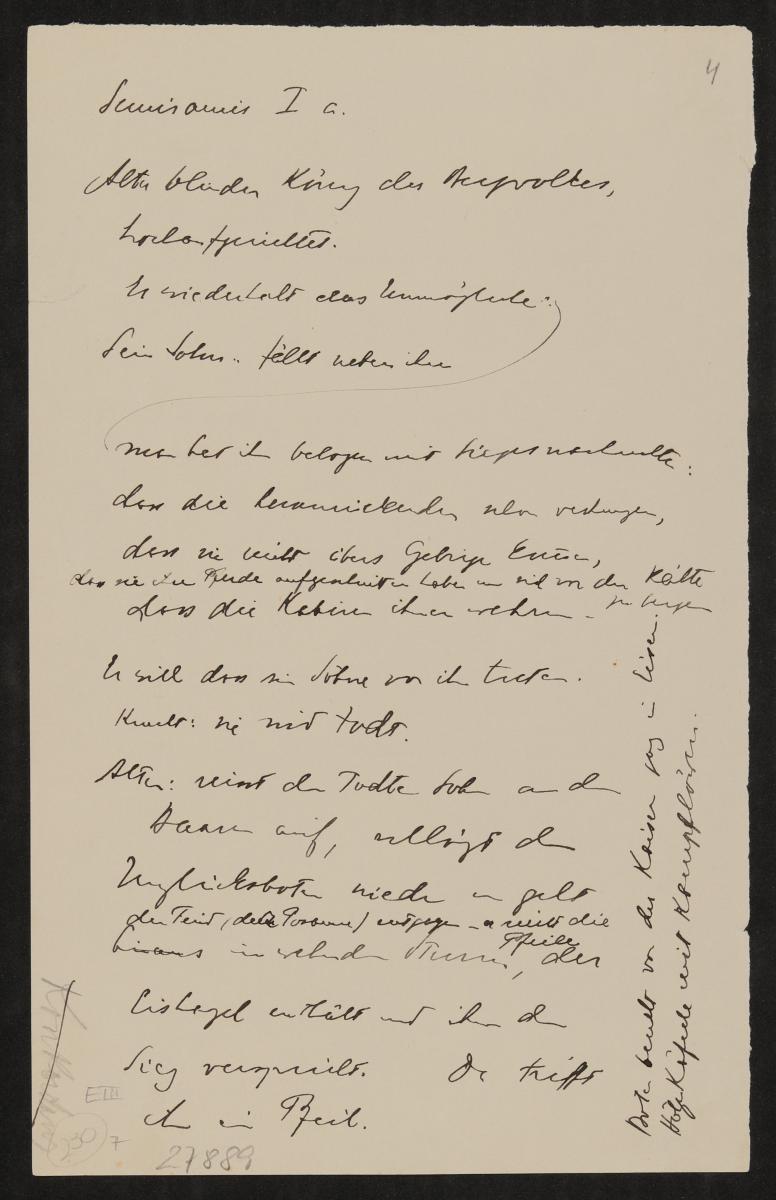 4
Semiramis I a.
Alter blinder König des Bergvolkes,
hochaufgerichtet.
Er wiederholt das Unmögliche:
Sein Sohn .. fällt neben ihm
man hat ihn belogen mit Siegesnachrichten:
dass die Heranrückenden schon
dass sie nicht übers Gebirge können,
dass sie die Pferde aufgeschnitten haben um sich vor der Kälte
zu bergen
dass die Kabiren ihnen wehren –
Er will dass sein Söhne vor ihn treten.
Knecht: sie sind todt.
Alter: reisst den Todten Sohn an den
Haaren auf, schlägt den
Unglücksboten nieder u geht
dem Feind (der Posaune) entgegen – er reisst die
Pfeile
hinaus in wehenden Sturm, der
Eishagel enthält und ihm den
Sieg verspricht. Da trifft
ihn ein Pfeil.
Bote benult von der Kaiser sag in Eisen.
Käfele mit Kampflöwen.
E III
230
7
27889